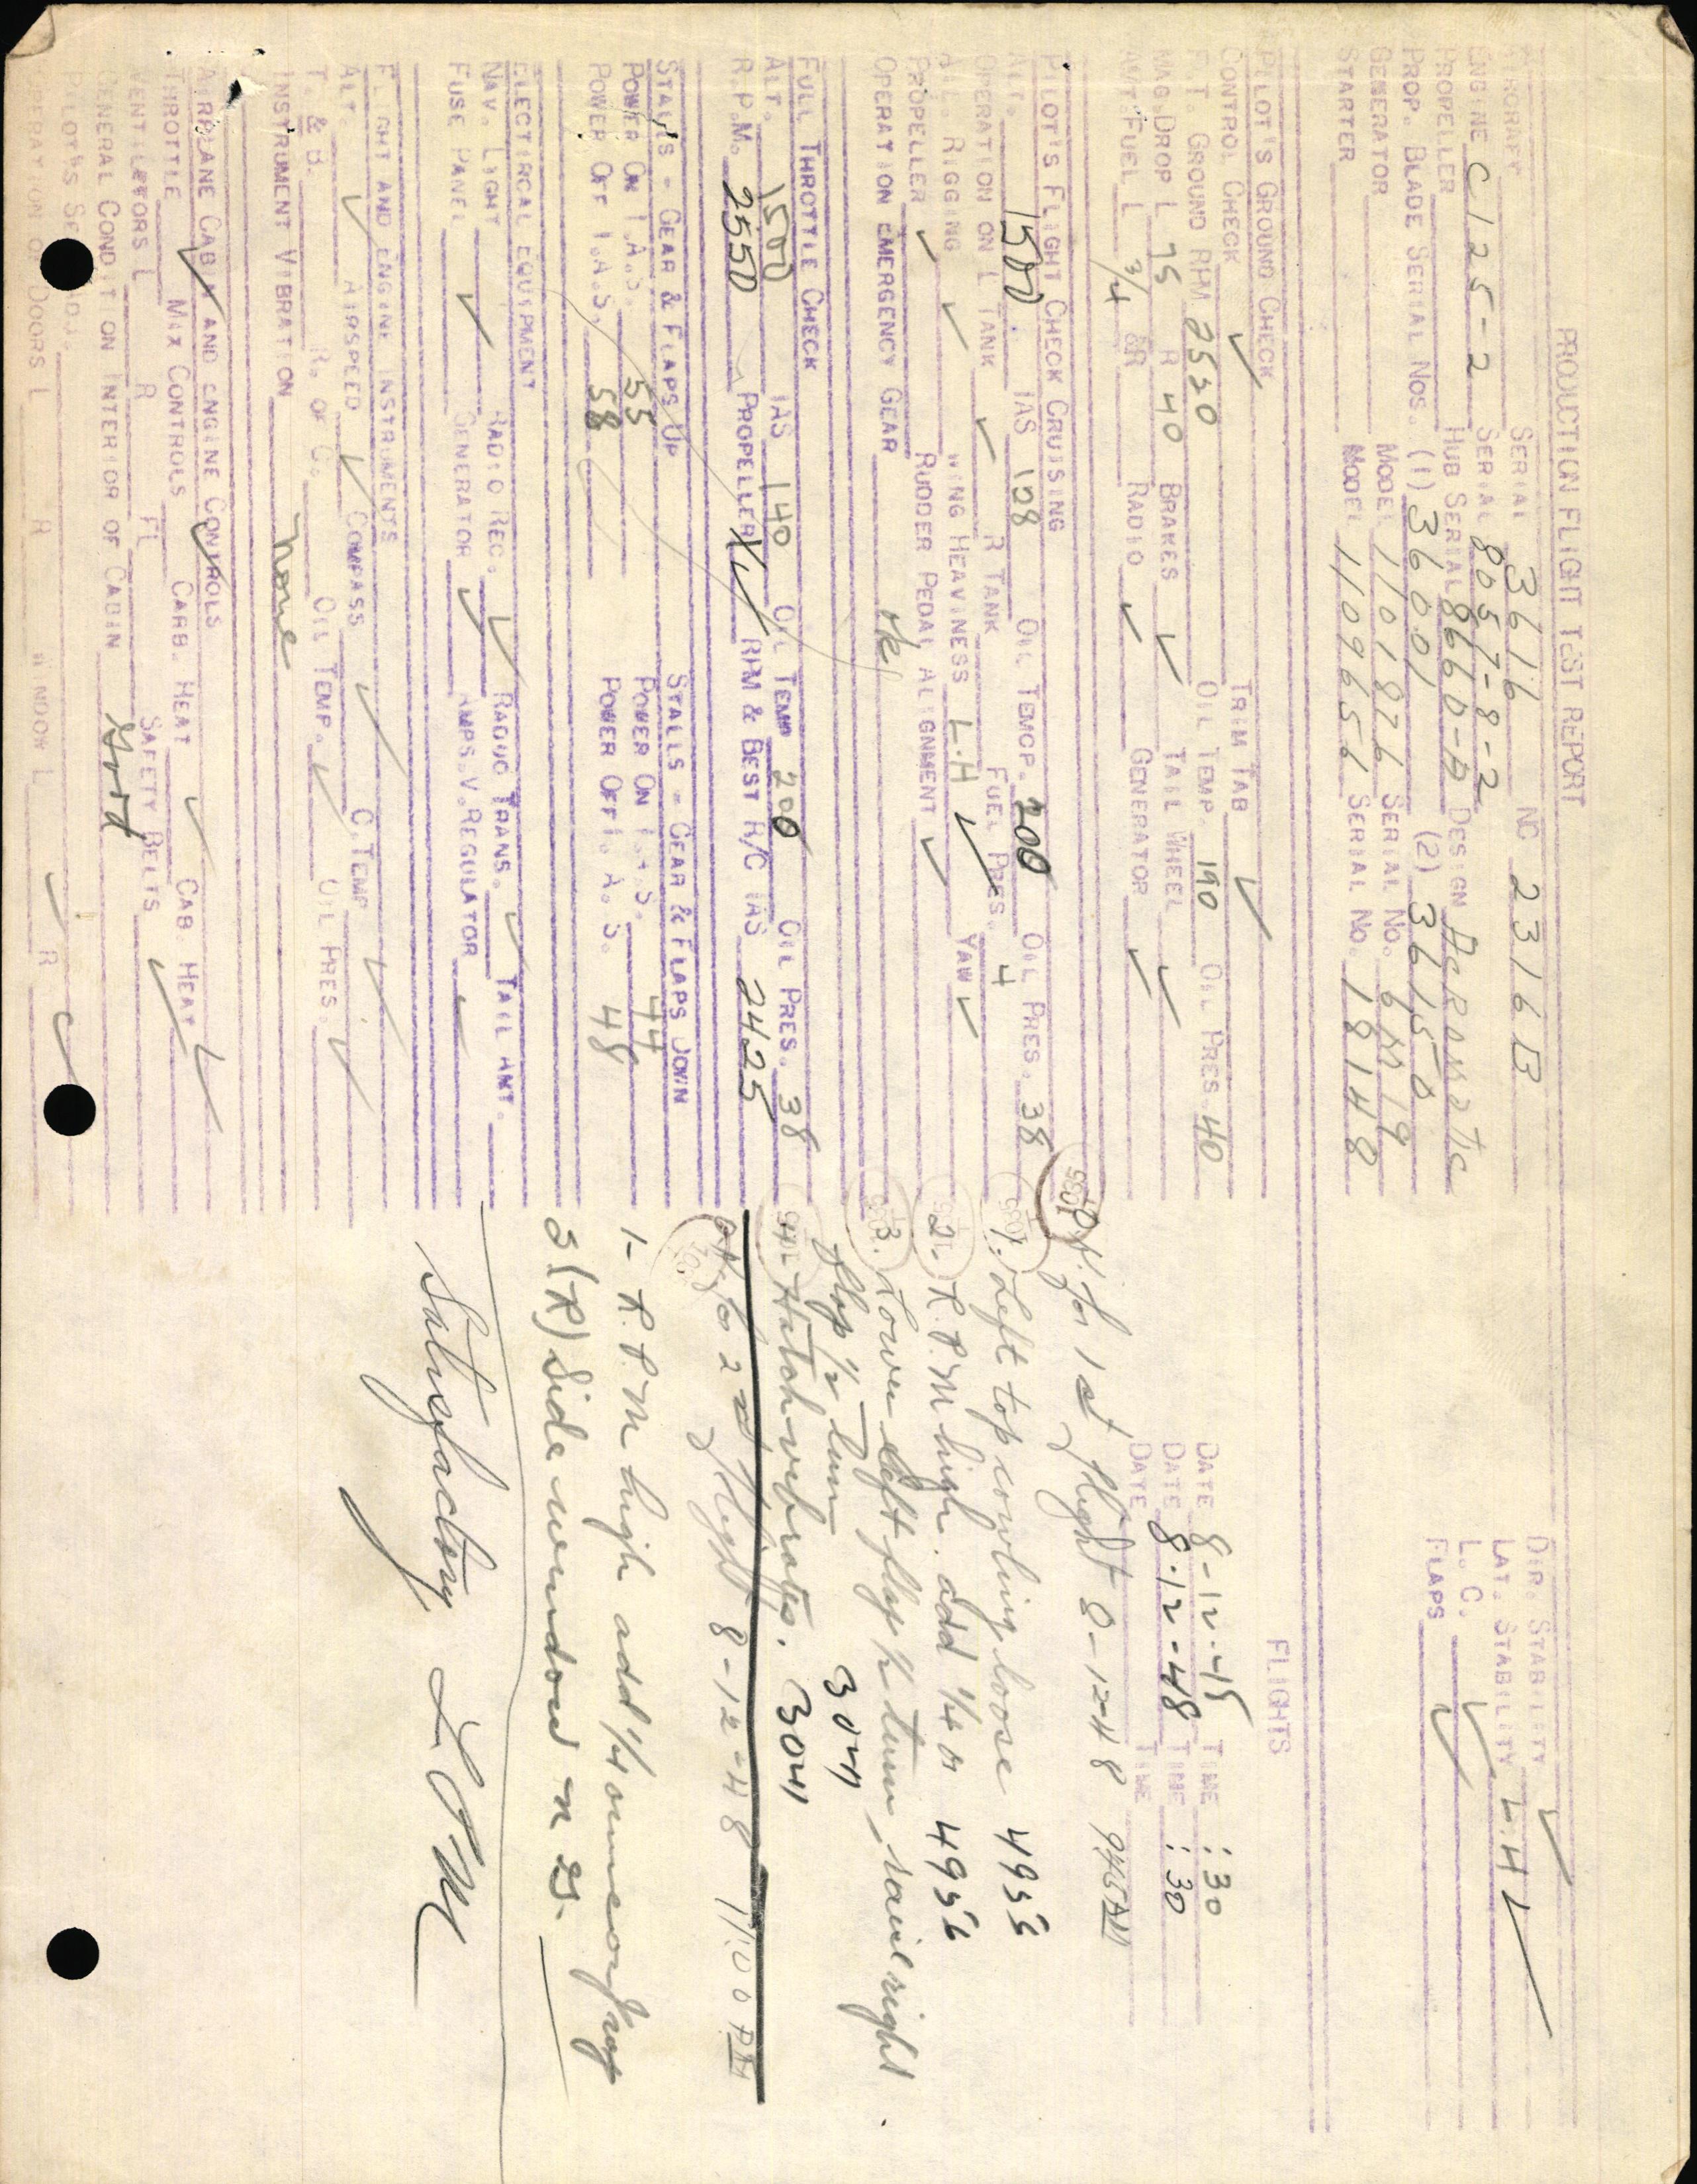 PRODUCTION FLIGHT TEST REPORT
SERIAL 3616 NC 2316B DIR. STABILITY ✓
ENGINE C125-2 SERIAL 8057-8-2 LAT. STABILITY L.H ✓
PROPELLER HUB SERIAL 8660-A DESIGN AeRomatic L. C. ✓
PROP. BLADE SERIAL NOS. (1) 36001 (2) 36150 FLAPS ✓
GENERATOR MODEL 1101876 SERIAL NO. 6M19
STARTER MODEL 1109656 SERIAL NO. 18148
PILOT'S GROUND CHECK FLIGHTS
CONTROL CHECK ✓ TRIM TAB ✓
F.T. GROUND RPM 2520 OIL TEMP. 190 OIL PRES 40 DATE 8-12-48 TIME :30
MAG. DROP L 75 R 40 BRAKES ✓ TAIL WHEEL ✓ DATE 8-12-48 TIME :30
FUEL L 3/4 R RADIO ✓ GENERATOR ✓ DATE TIME
PILOT'S FLIGHT CHECK CRUISING
ALT. 1500 IAS 128 OIL TEMCP. 200 OIL PRES. 38
OPERATION ON L TANK ✓ R TANK ✓ FUEL PRES. 4
RIGGING ✓ WING HEAVINESS L.H ✓ YAW ✓
PROPELLER ✓ RUDDER PEDAL ALIGNMENT ✓
OPERATION EMERGENCY GEAR ok
FULL THROTTLE CHECK
ALT. 1500 IAS 140 OIL TEMP 200 OIL PRES. 38
R.P.M. 2550 PROPELLER RPM & BEST R/C IAS 2425
STALLS - GEAR & FLAPS UP STALLS - GEAR & FLAPS DOWN
POWER ON I.A.S. 55 POWER ON I.A.S. 44
POWER OFF I.A.S. 58 POWER OFF I.A.S. 48
ELECTIRCAL EQUIPMENT
NAV. LIGHT RADIO REC. ✓ RADUO TRANS. ✓ TAIL ANT.
FUSE PANEL ✓ GENERATOR ✓ AMPS.V.REGULATOR ✓
FLIGHT AND ENGINE INSTRUMENTS
ALT. ✓ AIRSPEED ✓ COMPASS ✓ C.TEMP ✓
T. & B. R. OF C. OIL TEMP. ✓ OIL PRES. ✓
INSTRUMENT VIBRATION None
AIRPLANE CABIN AND ENGINE CONTROLS
THROTTLE ✓ MIX CONTROLS ✓ CARB. HEAT ✓ CAB. HEAT ✓
VENTILATORS L R FL SAFETY BELTS ✓
GENERAL CONDITION INTERIOR OF CABIN Good
PILOT'S SEAT ADJ.
OPERATION OF DOORS L R WINDOW L ✓ R ✓
O.K. for 1st flight 8-12-48 945 AM
1. Left top cowling loose 4956
2. R.P.M high. add 1/4 4956
3. Lower left flap 1/2 turn,
flap 1/2 turn 3041
4. Hatch vibrates. 3041
O.K. for 2nd flight 8-12-48 1/:00 PM
1- R.P.M high add 1/4 ounce
3 (R) Side window
Satisfactory